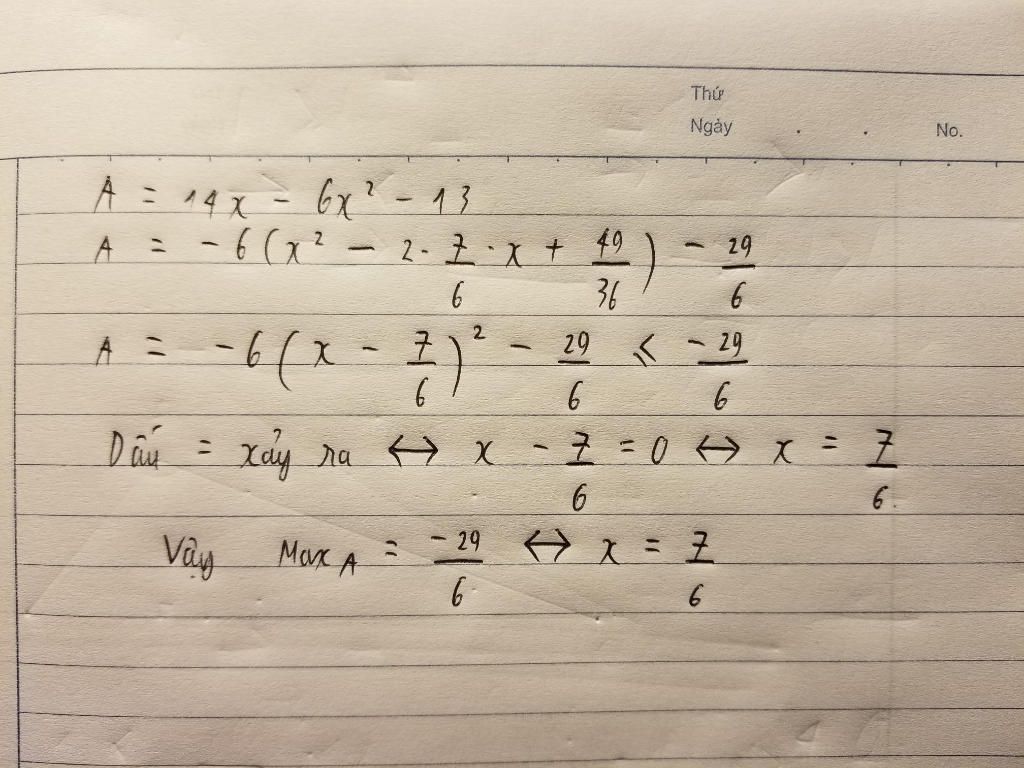 Thứ
Ngày . . No.
A = 14x - 6x² - 13
A = -6(x² - 2·7/6·x + 49/36) - 29/6
A = -6(x - 7/6)² - 29/6 ⩽ -29/6
Dấu = xảy ra ↔ x - 7/6 = 0 ↔ x = 7/6
Vậy Max_A = -29/6 ↔ x = 7/6